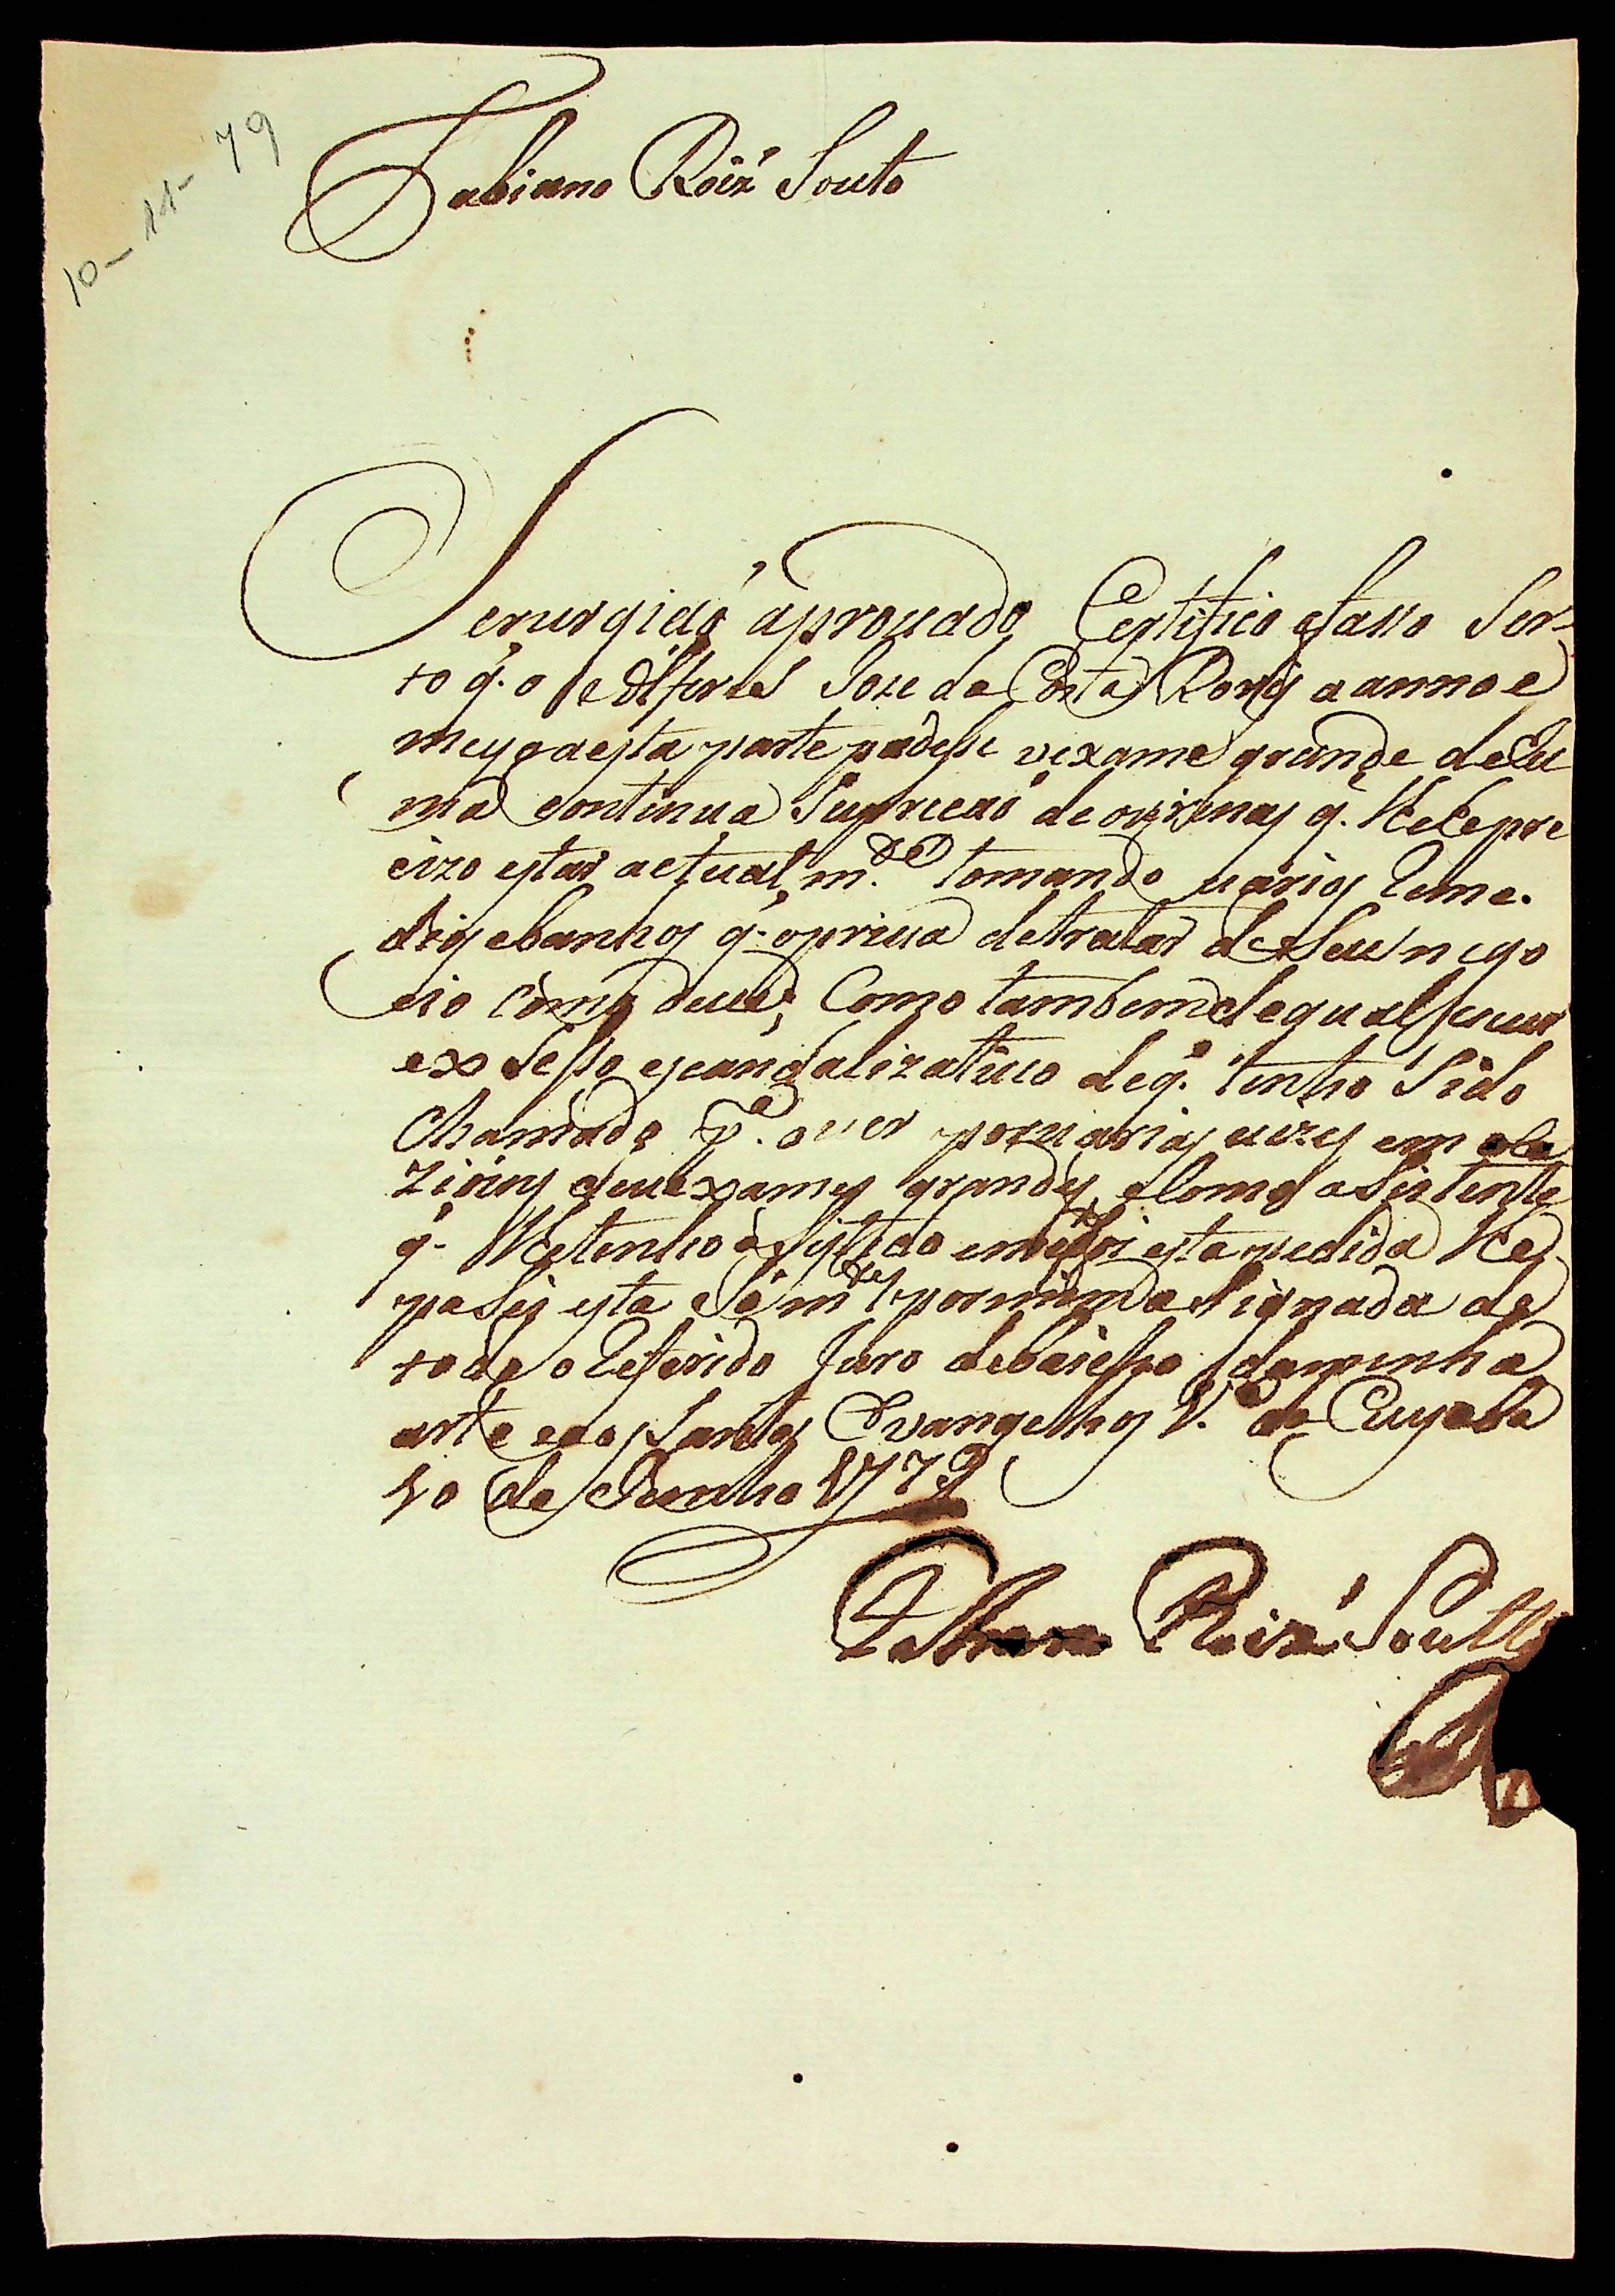 10-11-79
Fabiano Roiź Souto
Serurgiáo áprouado Certifico e fasso Ser-
to q. o Alferes Joze da Costa a anno e
meyo a esta parte padese vexame grande de hu
ma continua Supreçaó de ourinas q. lhe he pre
cizo estar actualm.te tomando uarios Reme.
dios e banhos q. o priua de tratar de Seu nego
cio como deue; Como tambem de qualquer
exSeSso escandalizatiuo de q. tenho Sido
Chamado p.a o ver por uarias uezes em
e uexames grandes, e Como aSistente
q. lhe tenho aSistido em esta pedida lhe
paSey esta Sóm.te por mim aSignada de
todo o Referido Juro debaixo da minha
arte e aos Santos Evangelhos V.a do Cuyaba
10 de Junho 1779
Roiź Soutto